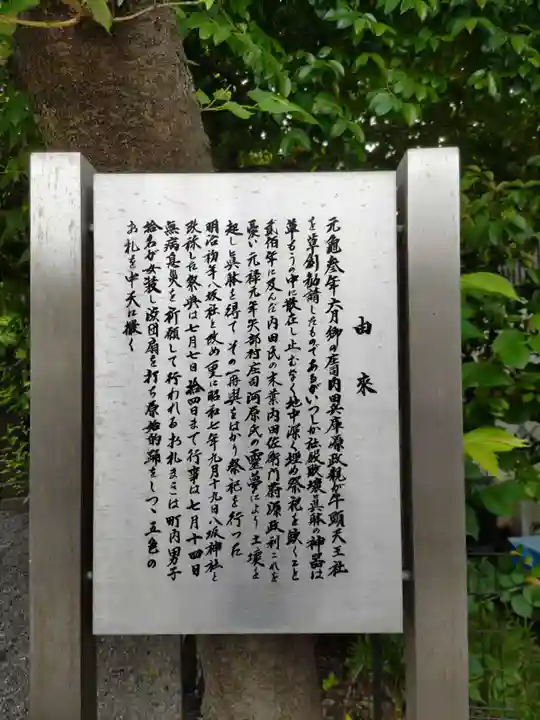 由来
元亀叁年六月郷の庄司内田兵庫源政親が牛頭天王社
を草創勧請したものであるがいつしか社殿破壊し眞躰の神器は
草もうの中に散在し止むなく地中深く埋め祭祀を缺くこと
貳佰年に及んだ内田氏の末葉内田佐衛門尉源政利これを
憂い元禄元年矢部村庄田河原氏の靈夢により土壌を
起し眞躰を得てその再興をはかり祭祀を行った
明治初年八坂社と改め更に昭和七年九月十九日八坂神社と
改称した祭典は七月七日拾四日まで行事は七月十四日
無病息災を祈願して行われるお札まきは町内男子
拾名が女装し渋団扇を打ち原始的踊をしつゝ五色の
お札を中天に撒く